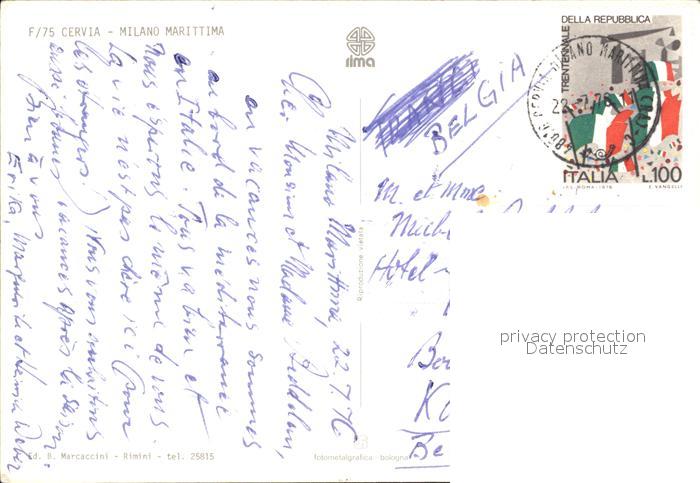 F/75 CERVIA - MILANO MARITTIMA
rima
Milano Marittima, 22.7.76
Cher Monsieur et Madame
en vacances nous sommes
au bord de la méditerranée
en Italie. Tous va bien et
nous espérons le même de vous.
La vie n'est pas chère ici (pour
les étrangers!) Nous vous souhaitons
aussi bonnes vacances après la saison.
Bien à vous
Erika, et Weber
Ed. B. Marcaccini - Rimini - tel. 25815
fotometalgrafica - bologna
Riproduzione vietata
BELGIA
M. et Mme
Hôtel
Be
TRENTENNALE DELLA REPUBBLICA
22.7.76
ITALIA L.100
I.P.S. ROMA - 1976 E. VANGELLI
privacy protection
Datenschutz